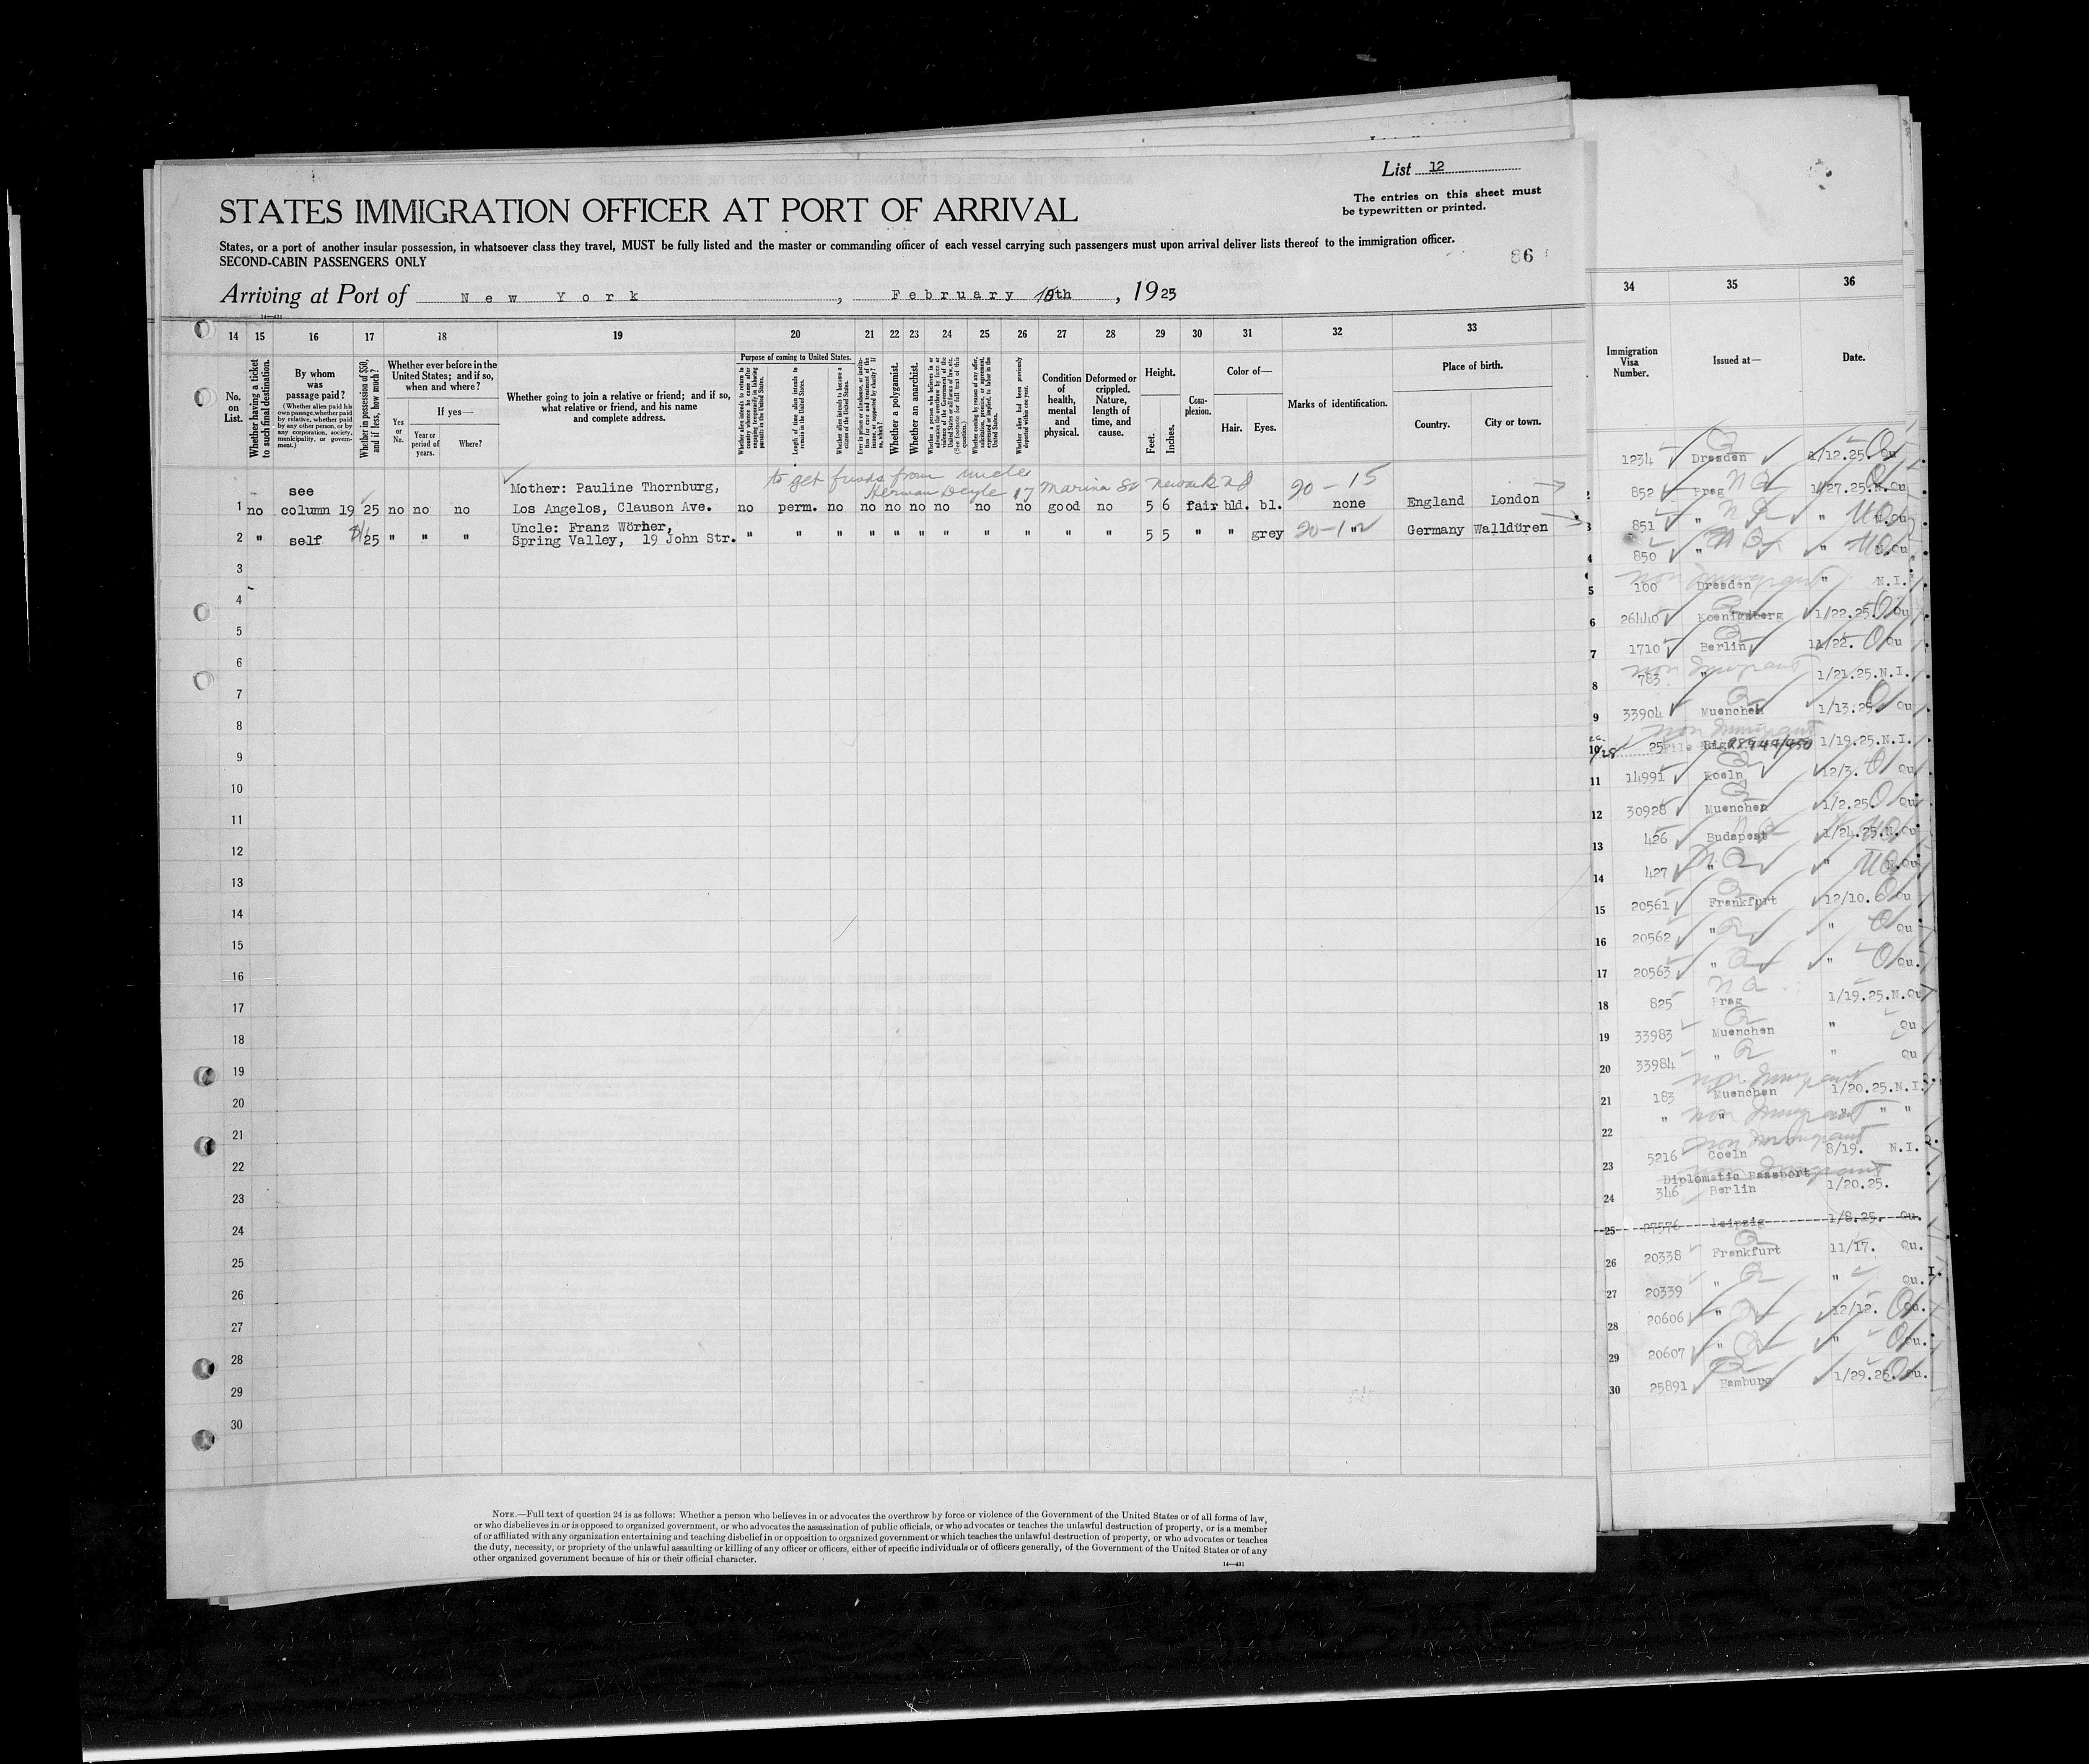 List 12
The entries on this sheet must
be typewritten or printed.
STATES IMMIGRATION OFFICER AT PORT OF ARRIVAL
States, or a port of another insular possession, in whatsoever class they travel, MUST be fully listed and the master or commanding officer of each vessel carrying such passengers must upon arrival deliver lists thereof to the immigration officer.
SECOND-CABIN PASSENGERS ONLY
86
Arriving at Port of New York, February th, 1925
14 15 16 17 18 19 20 21 22 23 24 25 26 27 28 29 30 31 32 33
No. on List.
Whether having a ticket to such final destination.
By whom was passage paid?
(Whether alien paid his own passage, whether paid by relative, whether paid by any other person, or by any corporation, society, municipality, or government.)
Whether in possession of $50, and if less, how much?
Whether ever before in the United States; and if so, when and where?
Yes or No.
If yes—
Year or period of years.
Where?
Whether going to join a relative or friend; and if so, what relative or friend, and his name and complete address.
Purpose of coming to United States.
Length of time alien intends to remain in the United States.
Whether alien intends to become a citizen of the United States.
Whether a polygamist.
Whether an anarchist.
Whether alien had been previously deported within one year.
Condition of health, mental and physical.
Deformed or crippled. Nature, length of time, and cause.
Height.
Feet.
Inches.
Complexion.
Color of—
Hair.
Eyes.
Marks of identification.
Place of birth.
Country.
City or town.
to get funds from uncle
Herman Deyle 17 Marina St Newark NJ
see Mother: Pauline Thornburg, 20-15
1 no column 19 25 no no no Los Angelos, Clauson Ave. no perm. no no no no no no no good no 5 6 fair bld. bl. none England London
Uncle: Franz Wörher,
2 " self 25 " " " Spring Valley, 19 John Str. " " " " " " " " " " " 5 5 " " grey " Germany Walldüren
3
4
5
6
7
8
9
10
11
12
13
14
15
16
17
18
19
20
21
22
23
24
25
26
27
28
29
30
NOTE.—Full text of question 24 is as follows: Whether a person who believes in or advocates the overthrow by force or violence of the Government of the United States or of all forms of law,
or who disbelieves in or is opposed to organized government, or who advocates the assassination of public officials, or who advocates or teaches the unlawful destruction of property, or is a member
of or affiliated with any organization entertaining and teaching disbelief in or opposition to organized government or which teaches the unlawful destruction of property, or who advocates or teaches
the duty, necessity, or propriety of the unlawful assaulting or killing of any officer or officers, either of specific individuals or of officers generally, of the Government of the United States or of any
other organized government because of his or their official character.
14—431
34 35 36
Immigration Visa Number.
Issued at—
Date.
1234 Dresden 1/12.25. Qu
2 852 Prag NQ 1/27.25.N.Qu
3 851 " NQ " N.Qu
4 850 " NQ " N.Qu
5 100 Dresden " N.I.
non Immigrant
6 26440 Koenigsberg 1/22.25. Qu
7 1710 Berlin 11/22. Qu
non Immigrant
8 783 " 1/21.25.N.I.
9 33904 Muenchen 1/13.25. Qu
non Immigrant
10 25 Riga 1/19.25.N.I.
11 14991 Koeln 12/3. Qu
12 30928 Muenchen 1/2.25. Qu
13 426 Budapest 1/24.25.N.Qu
14 427 " NQ " N.Qu
15 20561 Frankfurt 12/10. Qu
16 20562 " " Qu
17 20563 " " Qu.
18 825 Prag NQ 1/19.25.N.Qu
19 33983 Muenchen " Qu
20 33984 " " Qu
non Immigrant
21 183 Muenchen 1/20.25.N.I.
22 " " non Immigrant " " "
non Immigrant
23 5216 Coeln 8/19. N.I.
Diplomatic Passport
24 346 Berlin 1/20.25.
25 27576 Leipzig 1/8.25. Qu.
26 20338 Frankfurt 11/17. Qu.
27 20339 " " Qu.
28 20606 " 12/12. Qu.
29 20607 " " Qu.
30 25891 Hamburg 1/29.25. Qu.